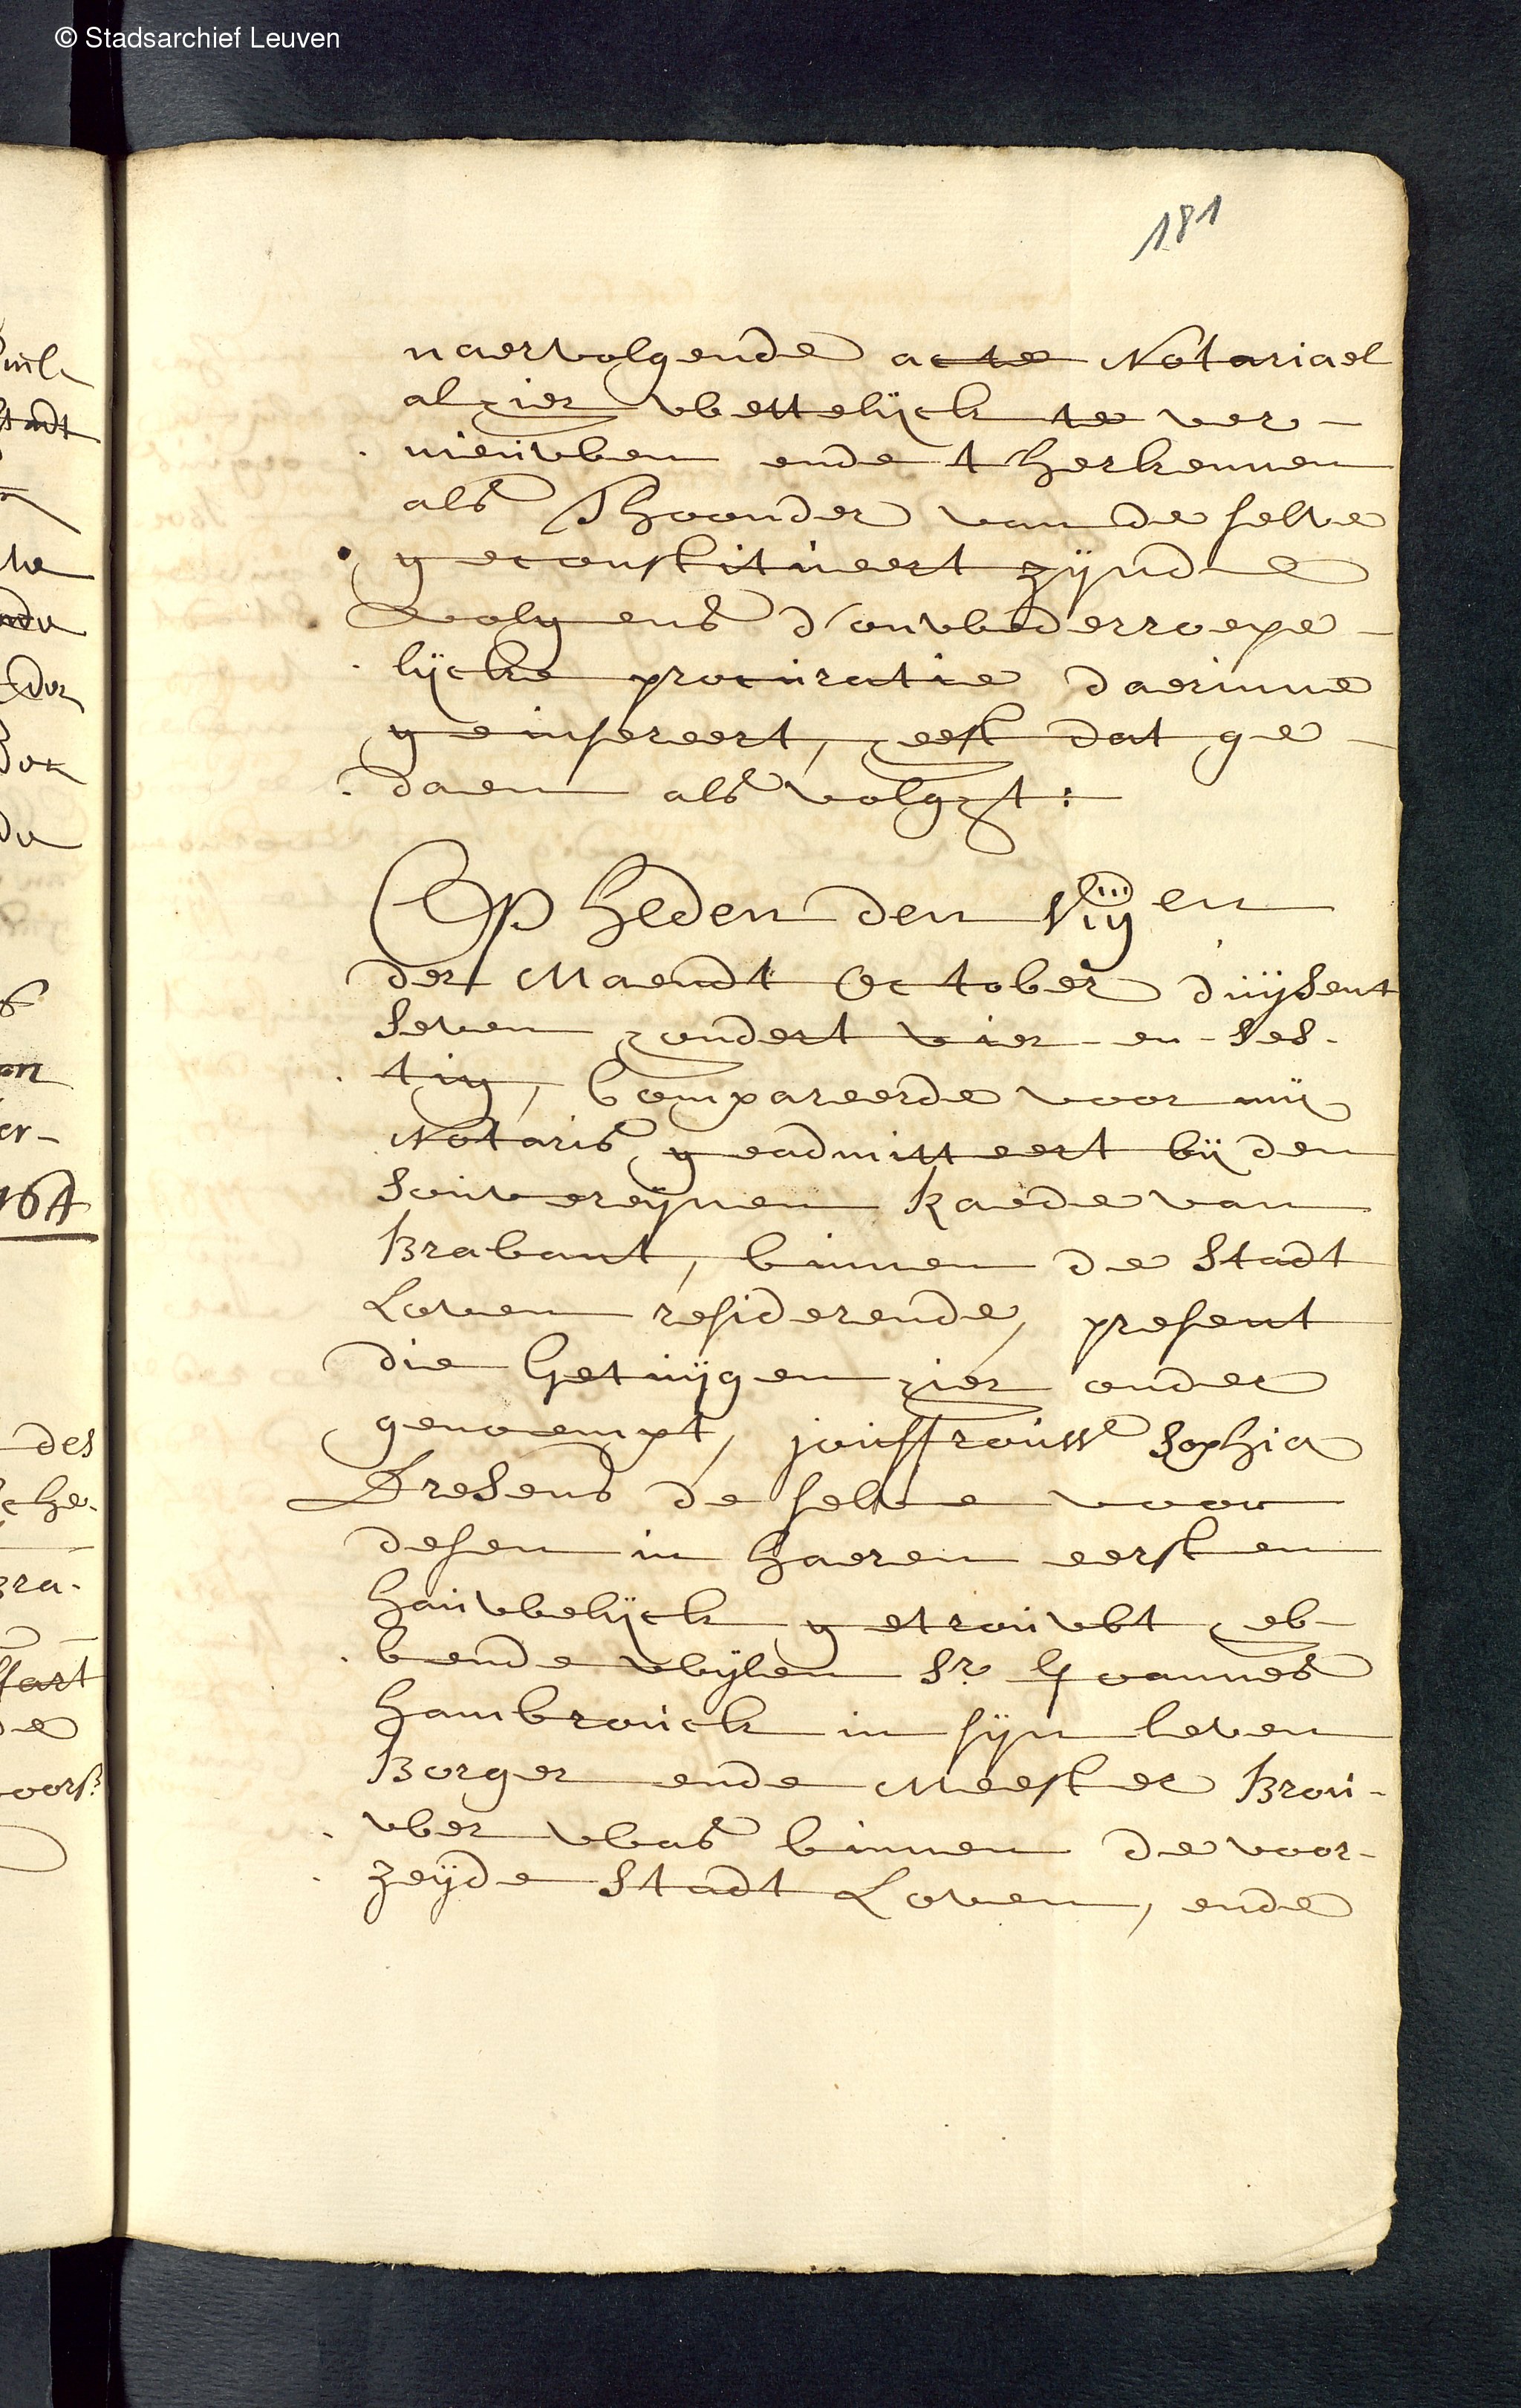 © Stadsarchief Leuven
181
naervolgende acte Notariael
alhier wettelijck te ver-
nieuwen ende t herkennen
als Thoonder van de selve
geconstitueert zijnde
volgens d'onwederroepe-
lijcke procuratie daerinne
geinsereert, heeft dat ge-
daen als volght:
Op heden den en
der Maendt October duijsent
seven hondert vier-en-ses-
tig, Compareerde voor mij
Notaris geadmitteert bij den
Souvereijnen Raede van
Brabant, binnen de Stadt
Loven residerende, present
die Getuijgen hier onder
genoempt, jouffrouw Sophia
Dresens de selve voor
desen in haeren eersten
hauwelijck getrouwt heb-
bende wijlen Sr Joannes
Hambrouck in sijn leven
Borger ende Meester Brou-
wer was binnen de voor-
zeijde Stadt Loven, ende